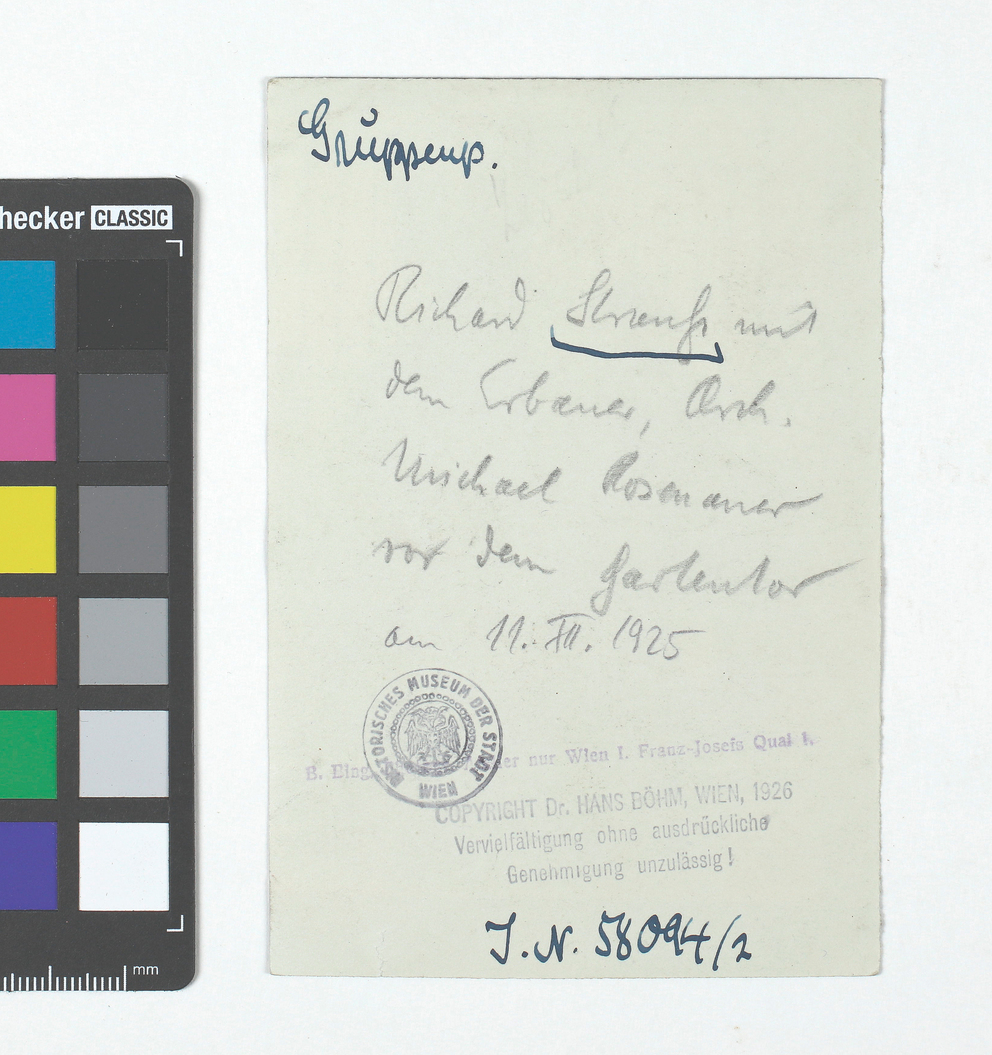 hecker CLASSIC
Gruppenp.
Richard Strauß mit
dem Erbauer, Arch.
Michael Rosenauer
vor dem Gartentor
am 11. XII. 1925
HISTORISCHES MUSEUM DER STADT WIEN
B. Eing er nur Wien I. Franz-Josefs Quai 1.
COPYRIGHT Dr. HANS BÖHM, WIEN, 1926
Vervielfältigung ohne ausdrückliche
Genehmigung unzulässig!
J. N. 58094/2
mm